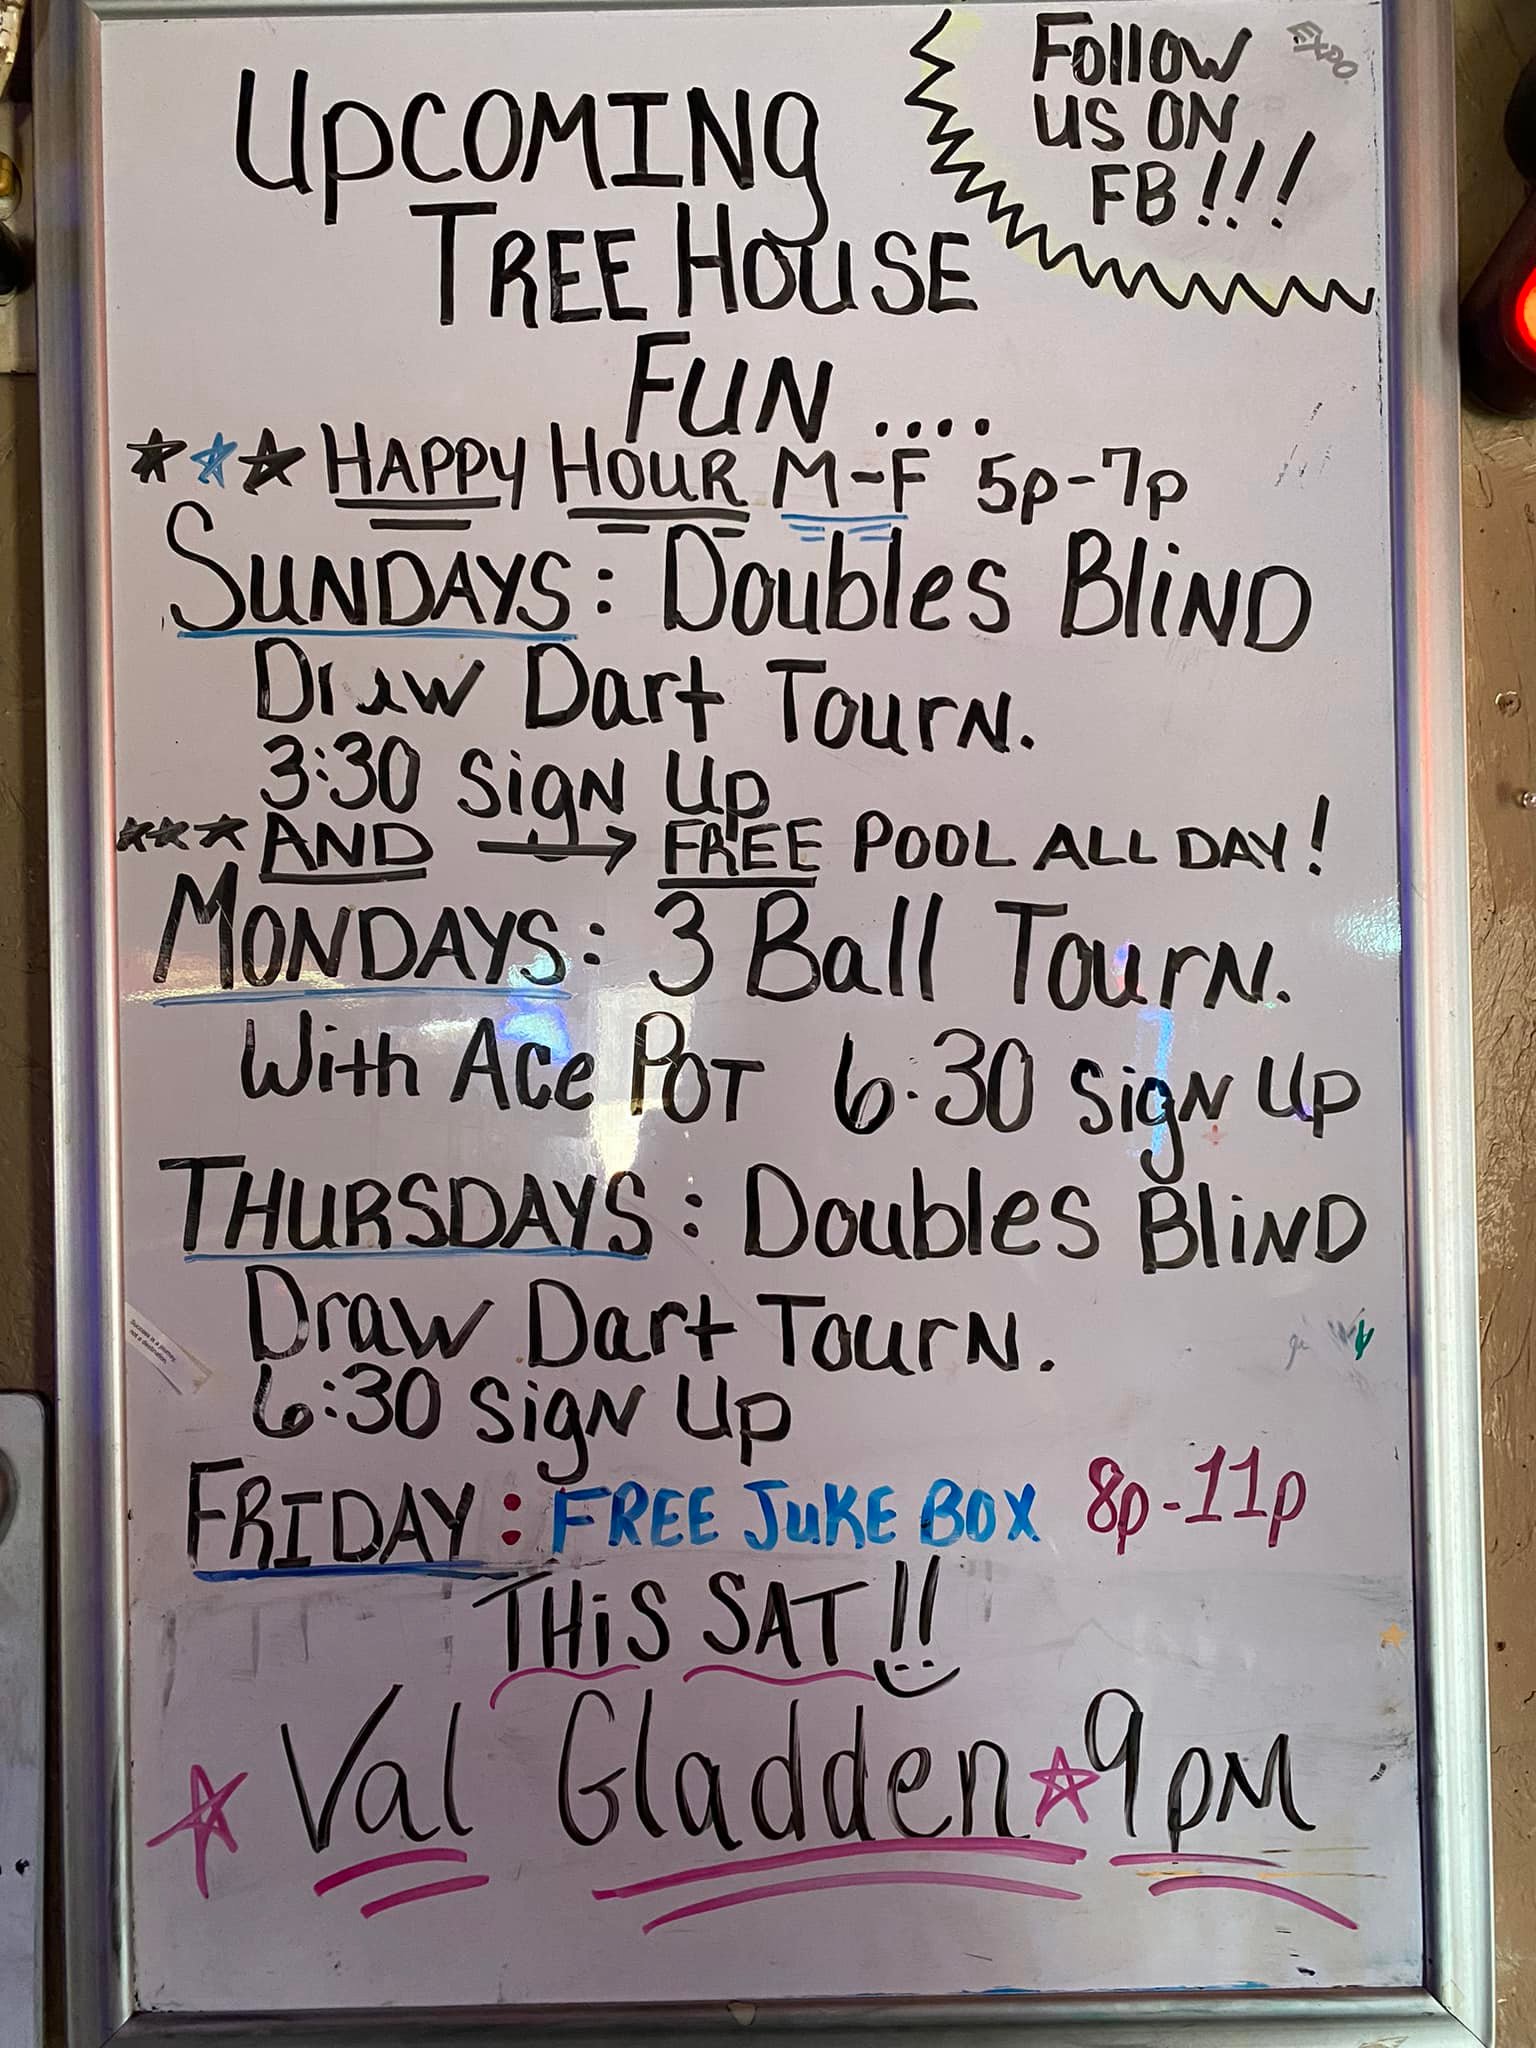 UpCOMING
TREE HOUSE
FUN ....
Follow
US ON
FB!!!
EXPO
HAPPY HOUR M-F 5p-7p
SUNDAYS: Doubles BliND
Draw Dart TourN.
3:30 SigN Up
AND → FREE POOL ALL DAY!
MONDAYS: 3 Ball TourN.
With Ace POT 6:30 SigN Up
THURSDAYS: Doubles BliND
Draw Dart TourN.
6:30 SigN Up
Success is a journey,
not a destination.
FRIDAY: FREE JUKE BOX 8p-11p
THiS SAT!!
Val Gladden 9pm